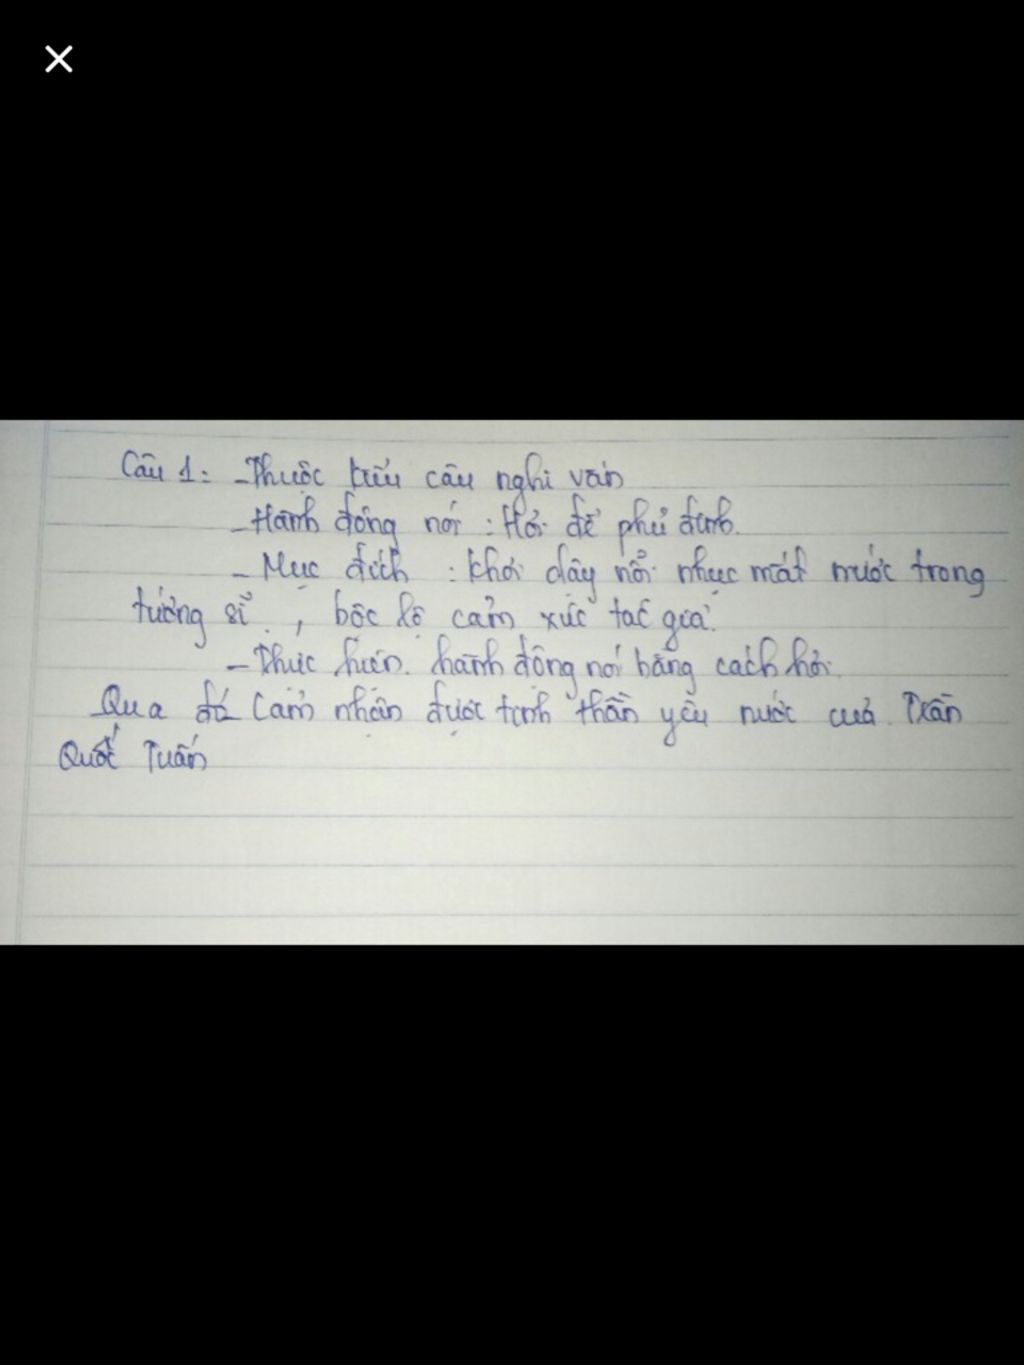 Câu 1: - Thuộc kiểu câu nghi vấn
- Hành động nói : Hỏi để phủ định.
- Mục đích : khơi dậy nỗi nhục mất nước trong
tướng sĩ , bộc lộ cảm xúc tác giả.
- Thực hiện hành động nói bằng cách hỏi.
Qua đó cảm nhận được tinh thần yêu nước của Trần
Quốc Tuấn